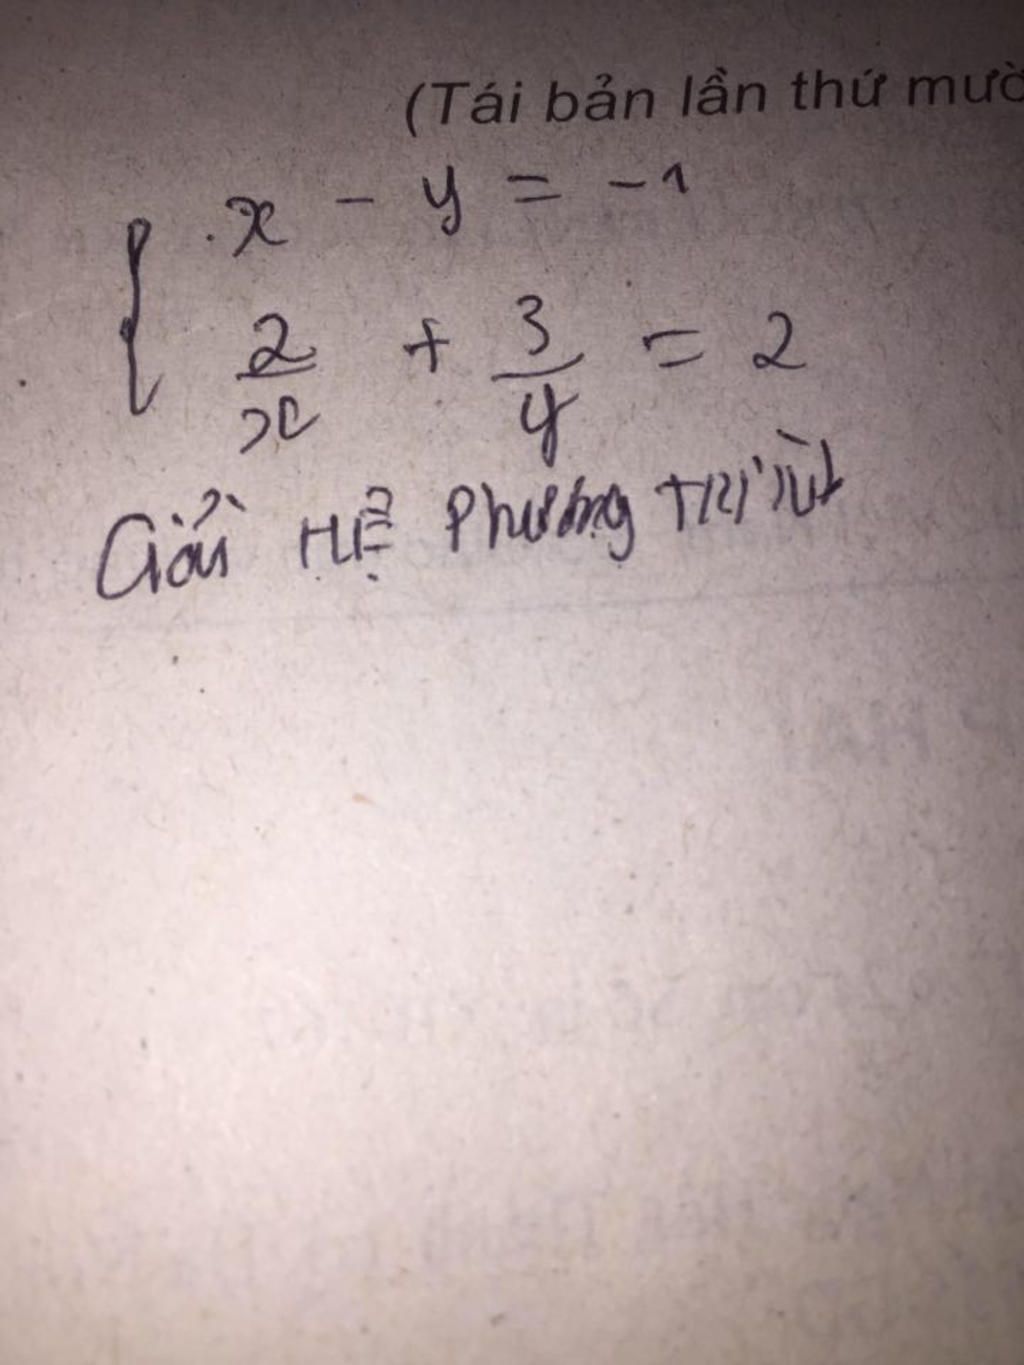 (Tái bản lần thứ mườ
x - y = -1
2/x + 3/y = 2
Giải HỆ Phương TRÌNH